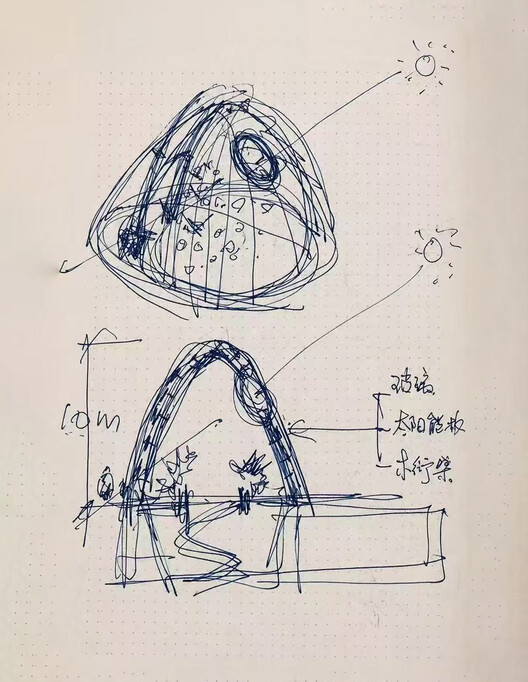 10m
玻璃
太阳能板
木衍架